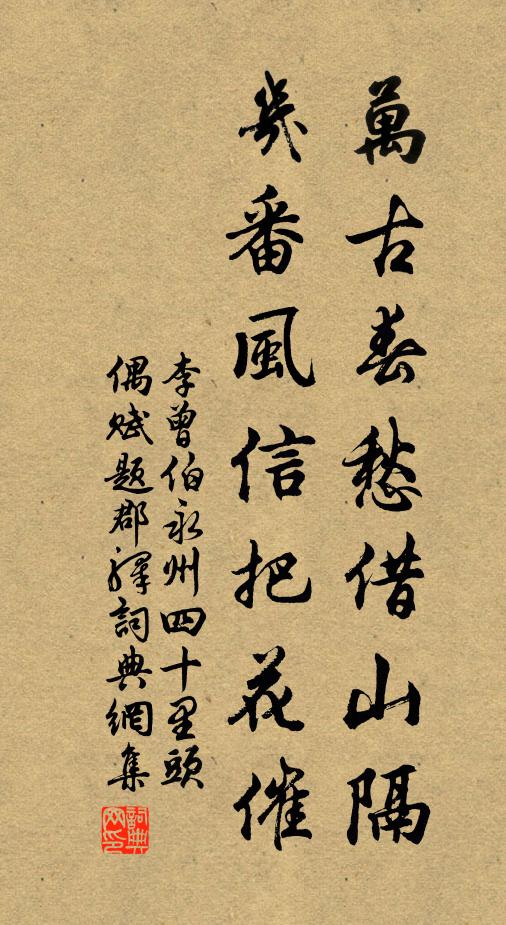 萬古春愁借山隔
幾番風信把花催
李曾伯永州四十里頭
偶賦題郡驛詞典網集
詞典網印